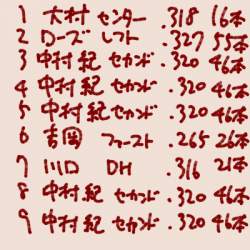 1 大村 センター .318 16本
2 ローズ レフト .327 55本
3 中村紀 セカンド .320 46本
4 中村紀 セカンド .320 46本
5 中村紀 セカンド .320 46本
6 吉岡 ファースト .265 26本
7 川口 DH .316 21本
8 中村紀 セカンド .320 46本
9 中村紀 セカンド .320 46本